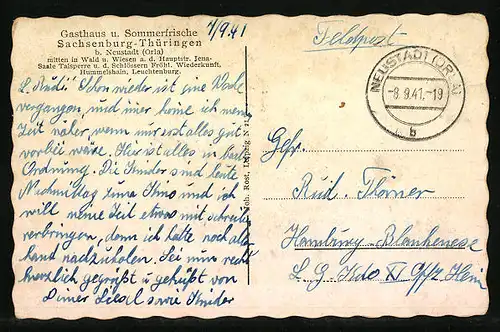 Gasthaus u. Sommerfrische
Sachsenburg-Thüringen
b. Neustadt (Orla)
mitten in Wald u. Wiesen a. d. Hauptstr. Jena-
Saale Talsperre u. d. Schlössern Fröhl. Wiederkunft,
Hummelshain, Leuchtenburg.
7/9.41
L. Rudi! Schon wieder ist eine Woche
vergangen und immer keine
Zeit näher wenn nur erst alles gut
vorbei wäre. Hier ist alles in
Ordnung. Die Kinder sind heute
Nachmittag zum Kino und ich
will meine Zeit etwas mit schreiben
verbringen, denn ich hatte noch aller-
hand nachzuholen. Sei nun recht
herzlich gegrüßt u geküßt von
Deiner Liesel sowie Kinder
Joh. Rost, Leipzig N 21
Feldpost
NEUSTADT (ORLA)
-8.9.41.-19
b
Gefr.
Rud.
Hamburg-Blankenese
L. G. Kdo XI